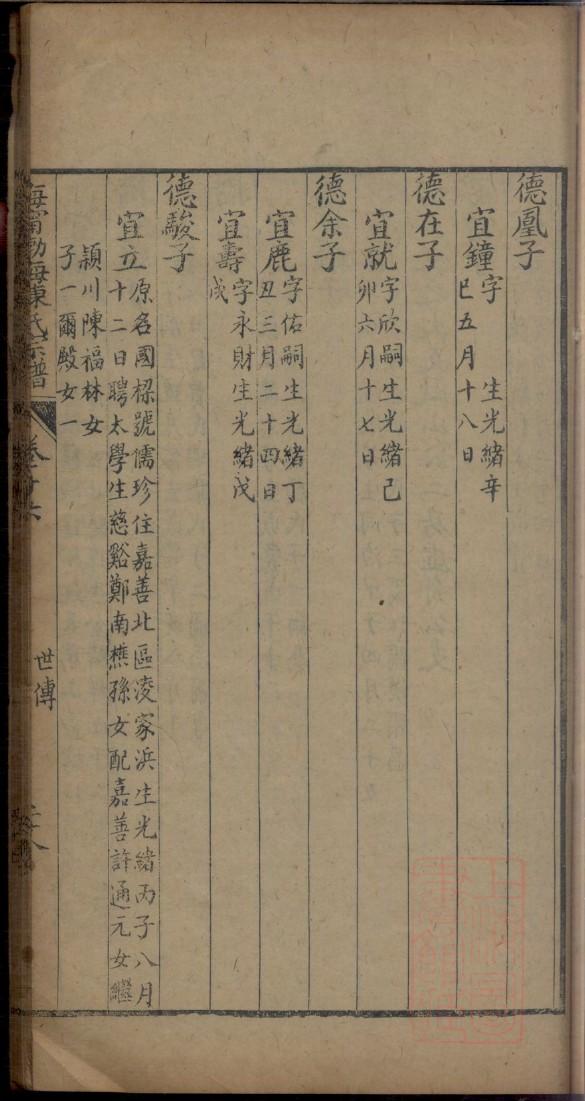 德凰子
宜鐘字 生光緒辛
巳五月十八日
德在子
宜就字欣嗣生光緒己
卯六月十七日
德余子
宜鹿字佑嗣生光緒丁
丑三月二十四日
宜壽字永財生光緒戊
戌
德駿子
宜立原名國樑號儒珍住嘉善北區凌家浜生光緒丙子八月
十二日聘太學生慈谿鄭南樵孫女配嘉善許通元女繼
潁川陳福林女
子一爾殿女一
海甯渤海陳氏宗譜
世傳